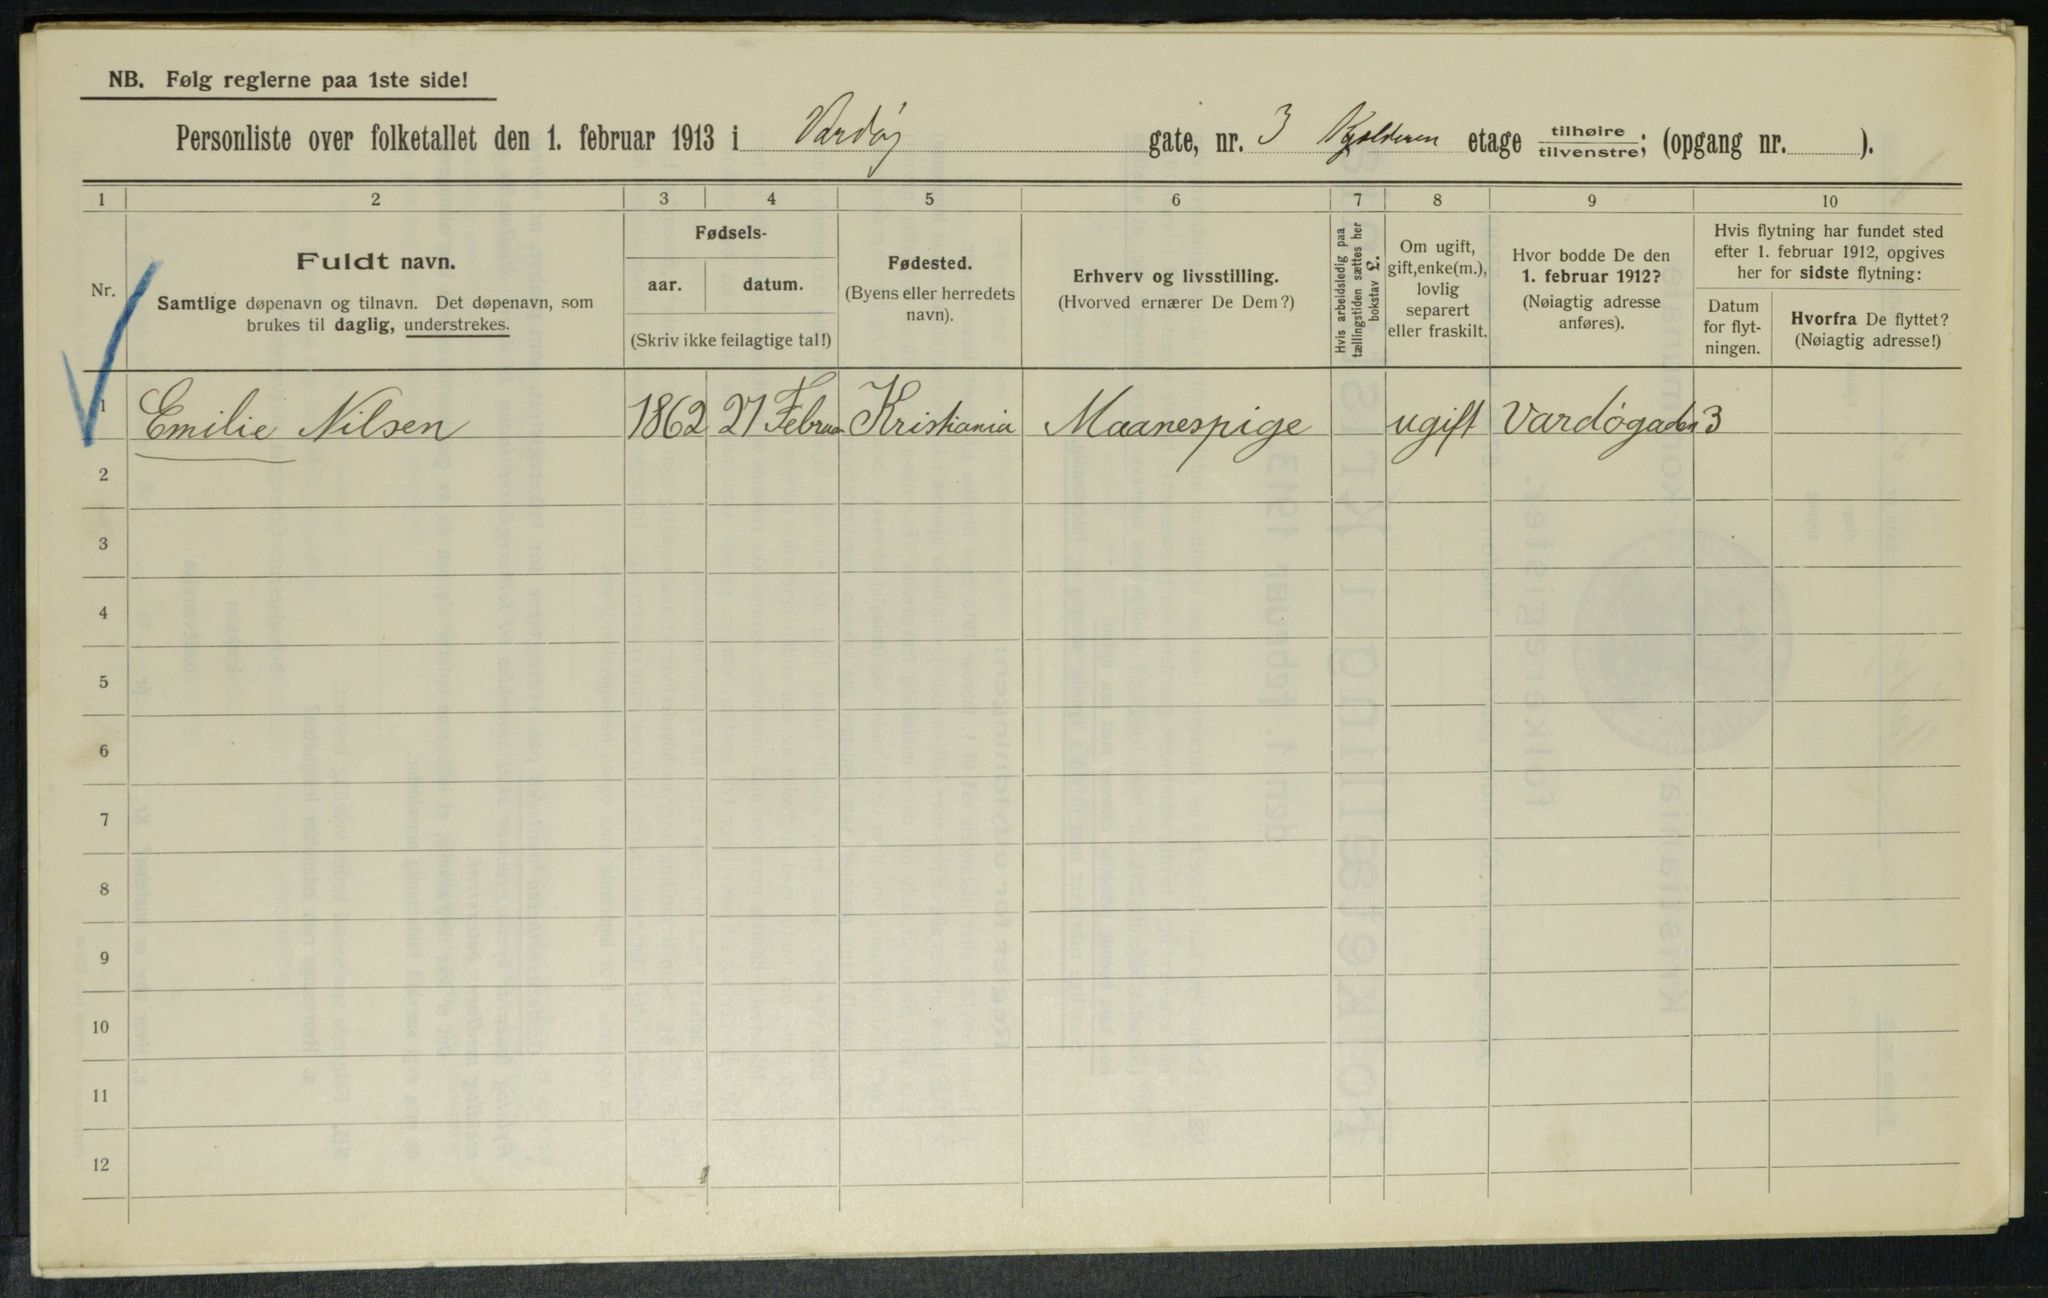 NB. Følg reglerne paa 1ste side!
Personliste over folketallet den 1. februar 1913 i Vardø gate, nr. 3 Kjelderen etage tilhøire/tilvenstre; (opgang nr. ).
1 2 3 4 5 6 7 8 9 10
Nr.
Fuldt navn.
Samtlige døpenavn og tilnavn. Det døpenavn, som
brukes til daglig, understrekes.
Fødsels-
aar. datum.
(Skriv ikke feilagtige tal!)
Fødested.
(Byens eller herredets
navn).
Erhverv og livsstilling.
(Hvorved ernærer De Dem?)
Hvis arbeidsledig paa
tællingstiden sættes her
bokstav L.
Om ugift,
gift, enke(m.),
lovlig
separert
eller fraskilt.
Hvor bodde De den
1. februar 1912?
(Nøiagtig adresse
anføres).
Hvis flytning har fundet sted
efter 1. februar 1912, opgives
her for sidste flytning:
Datum
for flyt-
ningen.
Hvorfra De flyttet?
(Nøiagtig adresse!)
1 Emilie Nilsen 1862 27 Februar Kristiania Maanespige ugift Vardøgaden 3
2
3
4
5
6
7
8
9
10
11
12